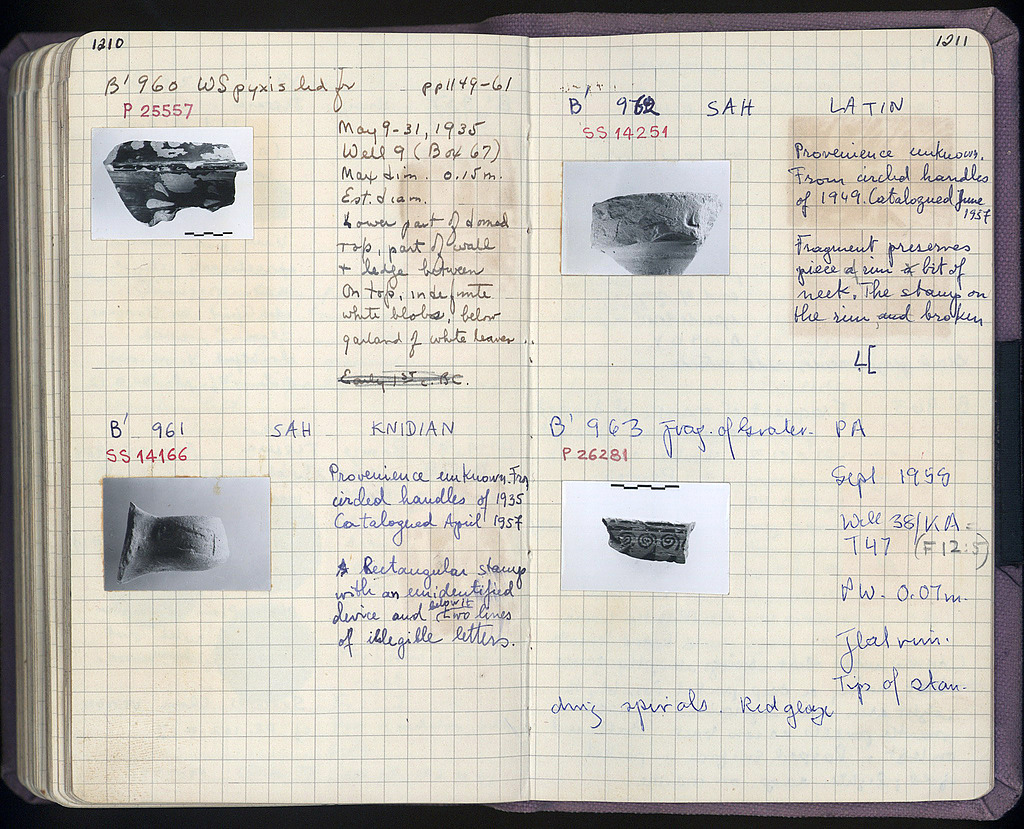 1210
B' 960 WS pyxis lid fr pp 1149-61
P 25557
May 9-31, 1935
Well 9 (Box 67)
Max dim. 0.15 m.
Est. diam.
Lower part of domed
top, part of wall
+ ledge between
On top, indefinite
white blobs, below
garland of white leaves
Early 1st c. BC.
B' 961 SAH KNIDIAN
SS 14166
Provenience unknown. From
circled handles of 1935
Catalogued April 1957
Rectangular stamp
with an unidentified
device and below it two lines
of illegible letters.
1211
B' 962 SAH LATIN
SS 14251
Provenience unknown.
From circled handles
of 1949. Catalogued June
1957
Fragment preserves
piece of rim & bit of
neck. The stamp on
the rim, and broken
L[
B' 963 Frag. of Krater. PA
P 26281
Sept 1959
Well 38/KA.
T47 (F 12:5)
PW. 0.07 m.
Flat rim.
Tips of stan-
ding spirals. Red glaze